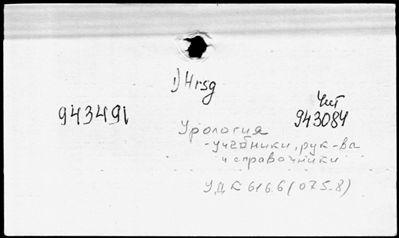 1) Hrsg
943491
Чит
943084
Урология
- учебники, рук-ва
и справочники
УДК 616.6(075.8)